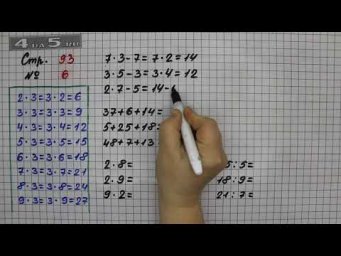 4 на 5.ру
Стр. 93
№ 6
2·3=3·2=6
3·3=3·3=9
4·3=3·4=12
5·3=3·5=15
6·3=3·6=18
7·3=3·7=21
8·3=3·8=24
9·3=3·9=27
7·3-7=7·2=14
3·5-3=3·4=12
2·7-5=14-
37+6+14=
5+25+18=
48+7+13
2·8=
2·9=
9·2=
5:5=
18:9=
21:7=